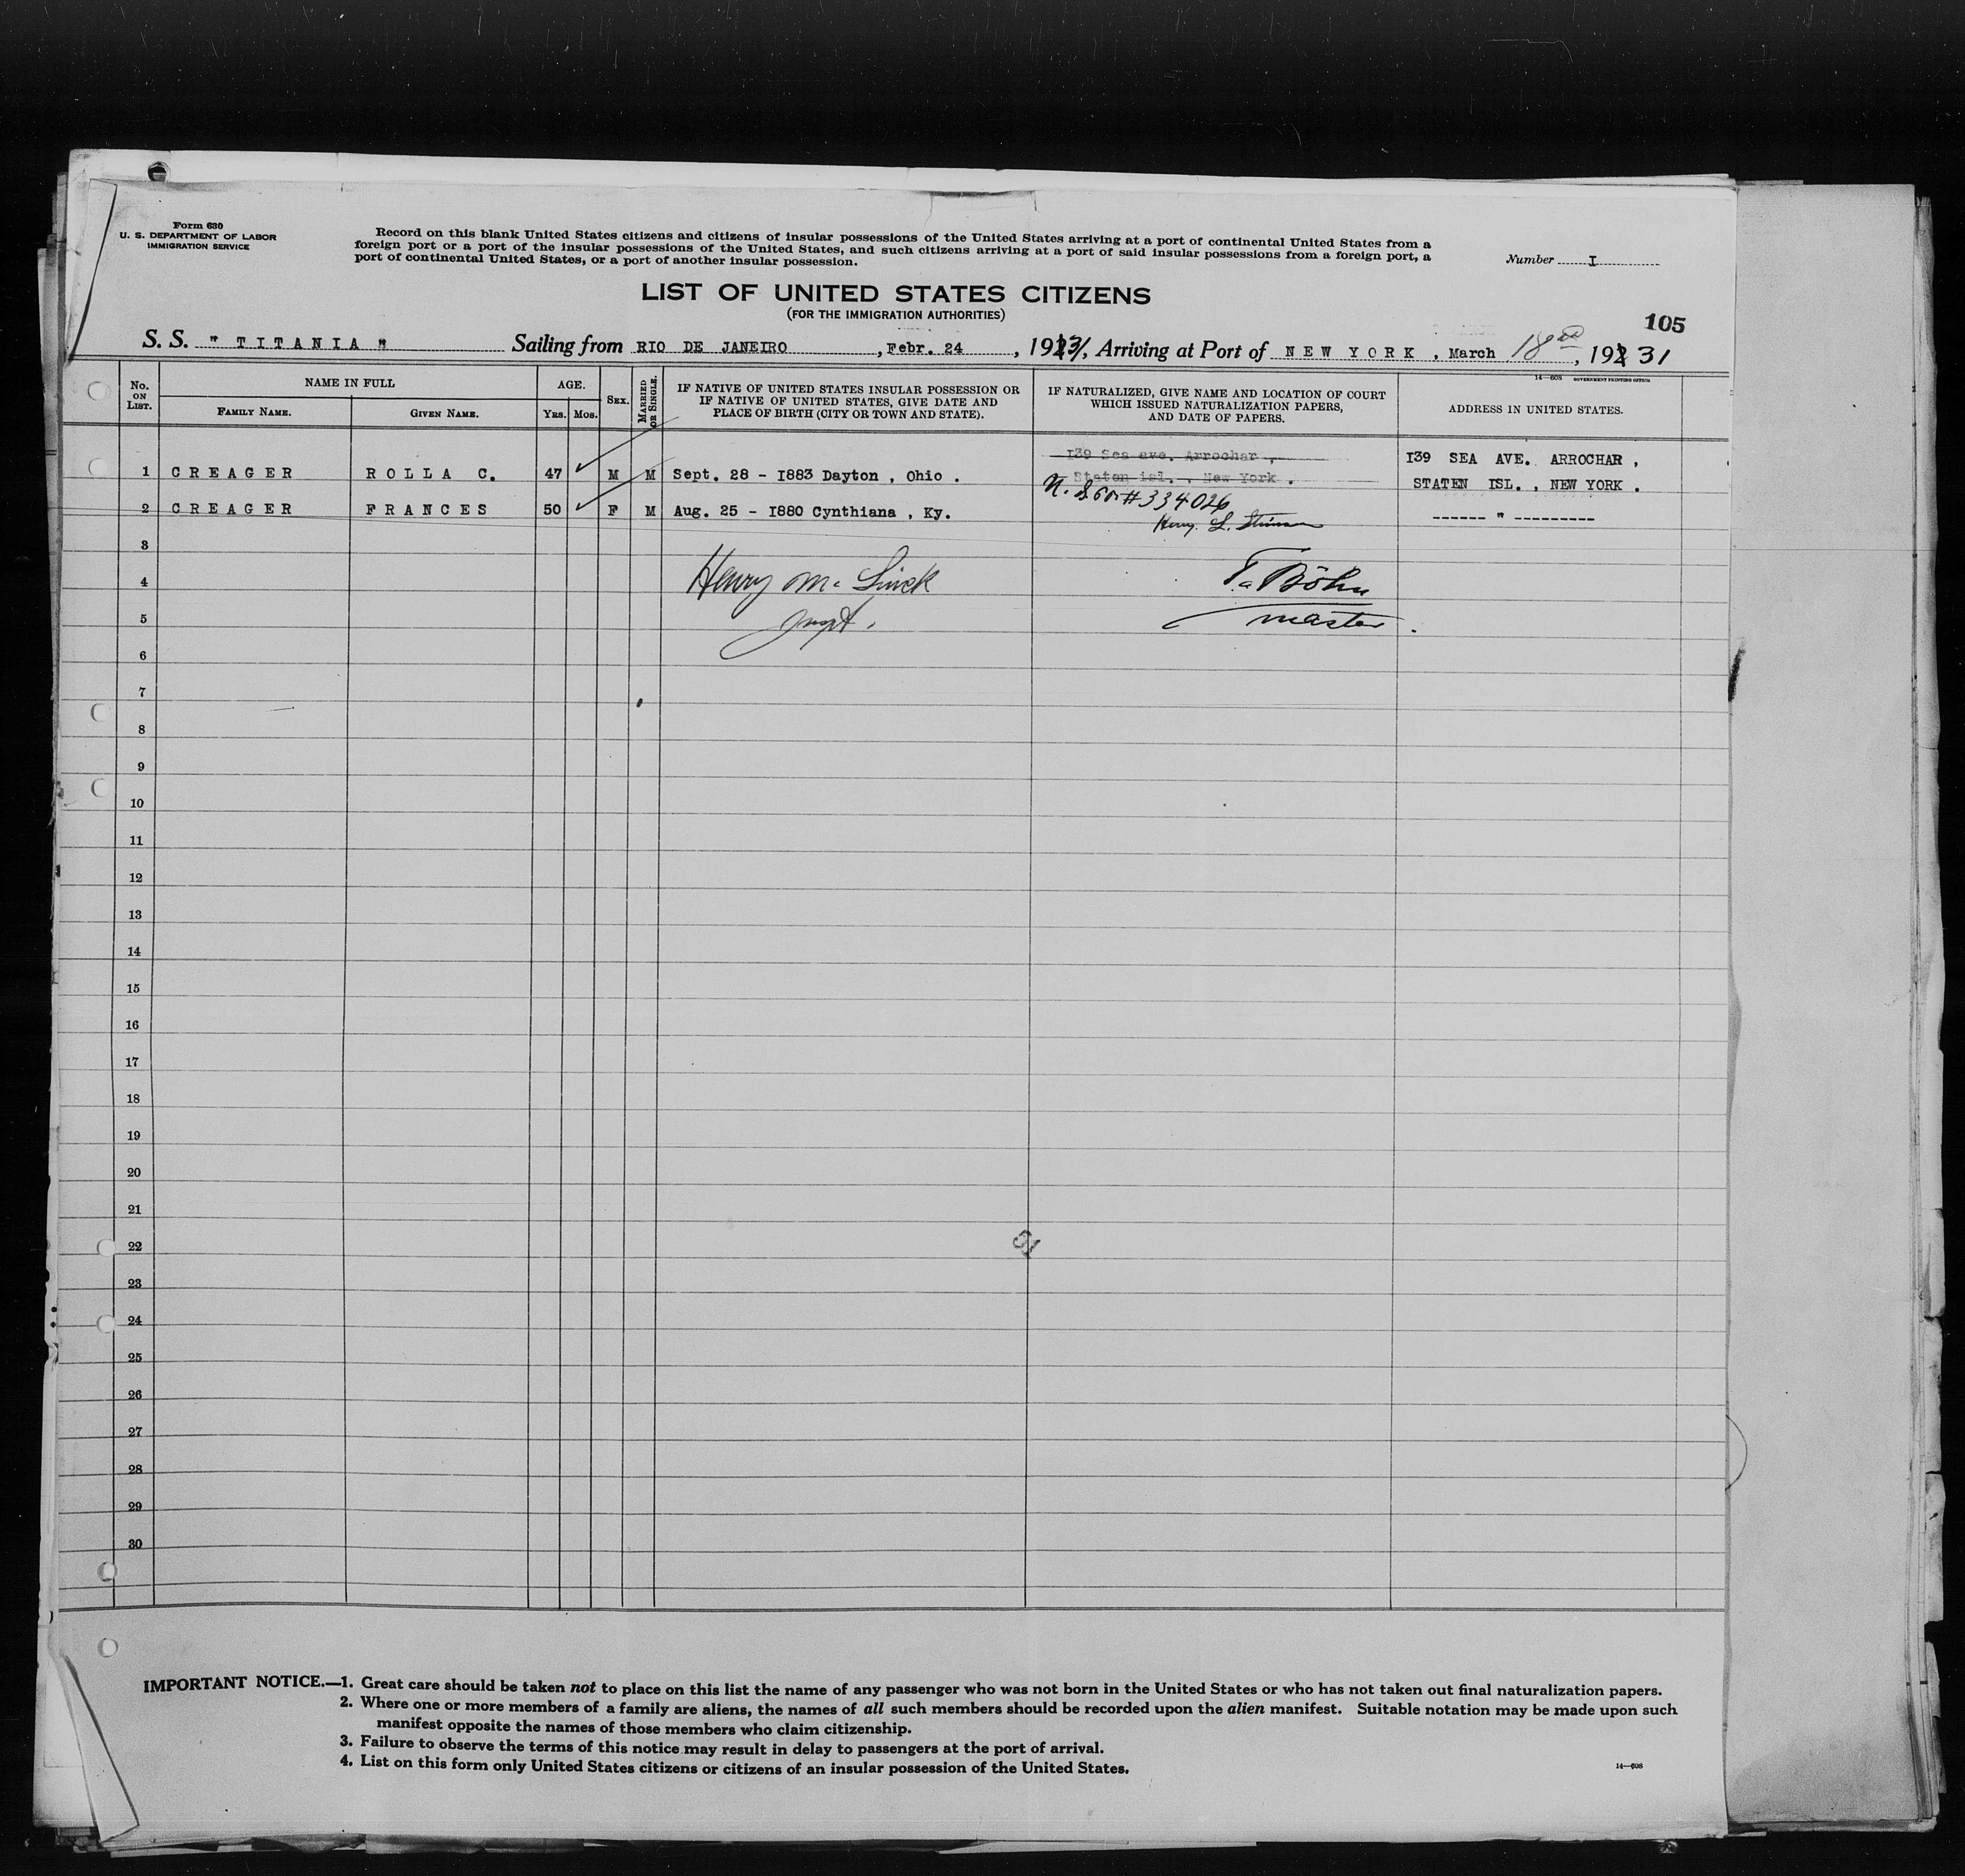 Form 630
U. S. DEPARTMENT OF LABOR
IMMIGRATION SERVICE
Record on this blank United States citizens and citizens of insular possessions of the United States arriving at a port of continental United States from a
foreign port or a port of the insular possessions of the United States, and such citizens arriving at a port of said insular possessions from a foreign port, a
port of continental United States, or a port of another insular possession.
Number I
LIST OF UNITED STATES CITIZENS
(FOR THE IMMIGRATION AUTHORITIES)
105
S. S. " TITANIA " Sailing from RIO DE JANEIRO , Febr. 24 , 1931, Arriving at Port of NEW YORK , March 18th , 1931
14—608 GOVERNMENT PRINTING OFFICE
No. ON LIST.
NAME IN FULL
FAMILY NAME.
GIVEN NAME.
AGE.
YRS. MOS.
SEX.
MARRIED OR SINGLE.
IF NATIVE OF UNITED STATES INSULAR POSSESSION OR
IF NATIVE OF UNITED STATES, GIVE DATE AND
PLACE OF BIRTH (CITY OR TOWN AND STATE).
IF NATURALIZED, GIVE NAME AND LOCATION OF COURT
WHICH ISSUED NATURALIZATION PAPERS,
AND DATE OF PAPERS.
ADDRESS IN UNITED STATES.
139 Sea ave. Arrochar ,
Staten isl. , New York .
1 CREAGER ROLLA C. 47 M M Sept. 28 - 1883 Dayton , Ohio .
139 SEA AVE. ARROCHAR ,
STATEN ISL. , NEW YORK .
#334026
2 CREAGER FRANCES 50 F M Aug. 25 - 1880 Cynthiana , Ky. ------ " ---------
Henry L. Stimson
3
4 Henry M. T. Böhn
5 Inspt. master.
6
7
8
9
10
11
12
13
14
15
16
17
18
19
20
21
22
23
24
25
26
27
28
29
30
IMPORTANT NOTICE.—1. Great care should be taken not to place on this list the name of any passenger who was not born in the United States or who has not taken out final naturalization papers.
2. Where one or more members of a family are aliens, the names of all such members should be recorded upon the alien manifest. Suitable notation may be made upon such
manifest opposite the names of those members who claim citizenship.
3. Failure to observe the terms of this notice may result in delay to passengers at the port of arrival.
4. List on this form only United States citizens or citizens of an insular possession of the United States.
14—608